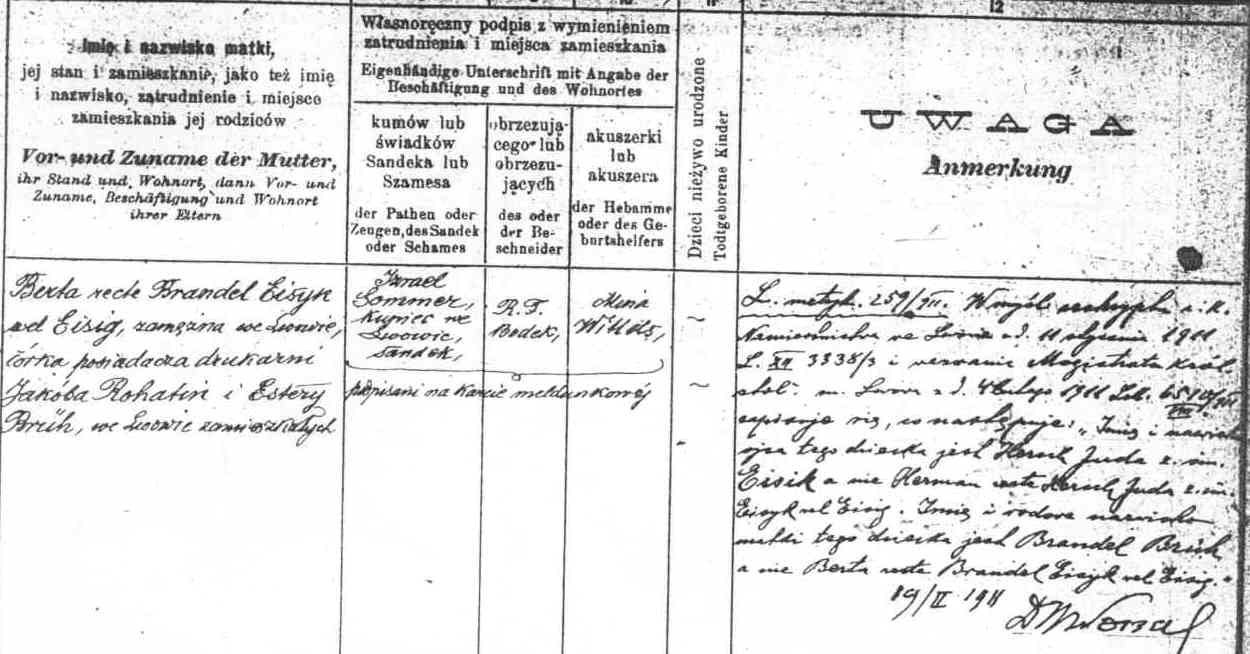 11
12
Imię i nazwisko matki,
jej stan i zamieszkanie, jako też imię
i nazwisko, zatrudnienie i miejsce
zamieszkania jej rodziców
Vor- und Zuname der Mutter,
ihr Stand und Wohnort, dann Vor- und
Zuname, Beschäftigung und Wohnort
ihrer Eltern
Własnoręczny podpis z wymienieniem
zatrudnienia i miejsca zamieszkania
Eigenhändige Unterschrift mit Angabe der
Beschäftigung und des Wohnortes
kumów lub
świadków
Sandeka lub
Szamesa
der Pathen oder
Zeugen, des Sandek
oder Schames
obrzezują-
cego lub
obrzezu-
jących
des oder
der Be-
schneider
akuszerki
lub
akuszera
der Hebamme
oder des Ge-
burtshelfers
Dzieci nieżywo urodzone
Todtgeborene Kinder
UWAGA
Anmerkung
Berta recte Brandel Eisyk
vel Eisig, zamężna we Lwowie,
córka posiadacza drukarni
Jakóba Rohatin i Estery
Brüh, we Lwowie zamieszkałych
Izrael
Sommer,
kupiec we
Lwowie,
Sandek,
R. T.
Bodek,
Mina
podpisani na karcie meldunkowej
L. metryk. 259/911. W myśl reskryptu c. k.
Namiestnictwa we Lwowie z d. 11 stycznia 1911
L. XII 3338/3 i wezwania Magistratu król.
stoł. m. Lwowa z d. 4 lutego 1911 Lab.
zapisuje się, co następuje: „Imię i nazwisko
ojca tego dziecka jest Hersch Juda z. im.
Eisik a nie Herman recte Hersch Juda z. im.
Eisyk vel Eisig. Imię i rodowe nazwisko
matki tego dziecka jest Brandel Brüh
a nie Berta recte Brandel Eisyk vel Eisig."
19/II 1911